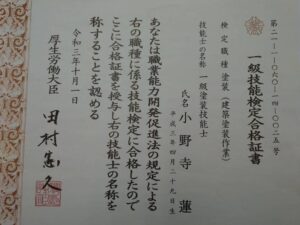 第二一-一-〇六〇-一四-〇〇二五号
一級技能検定合格証書
検定職種 塗装(建築塗装作業)
技能士の名称 一級塗装技能士
氏名 小野寺 蓮
平成三年四月二十九日生
あなたは職業能力開発促進法の規定による
右の職種に係る技能検定に合格したので
ここに合格証書を授与し右の技能士の名称を
称することを認める
令和三年十月一日
厚生労働大臣 田村憲久